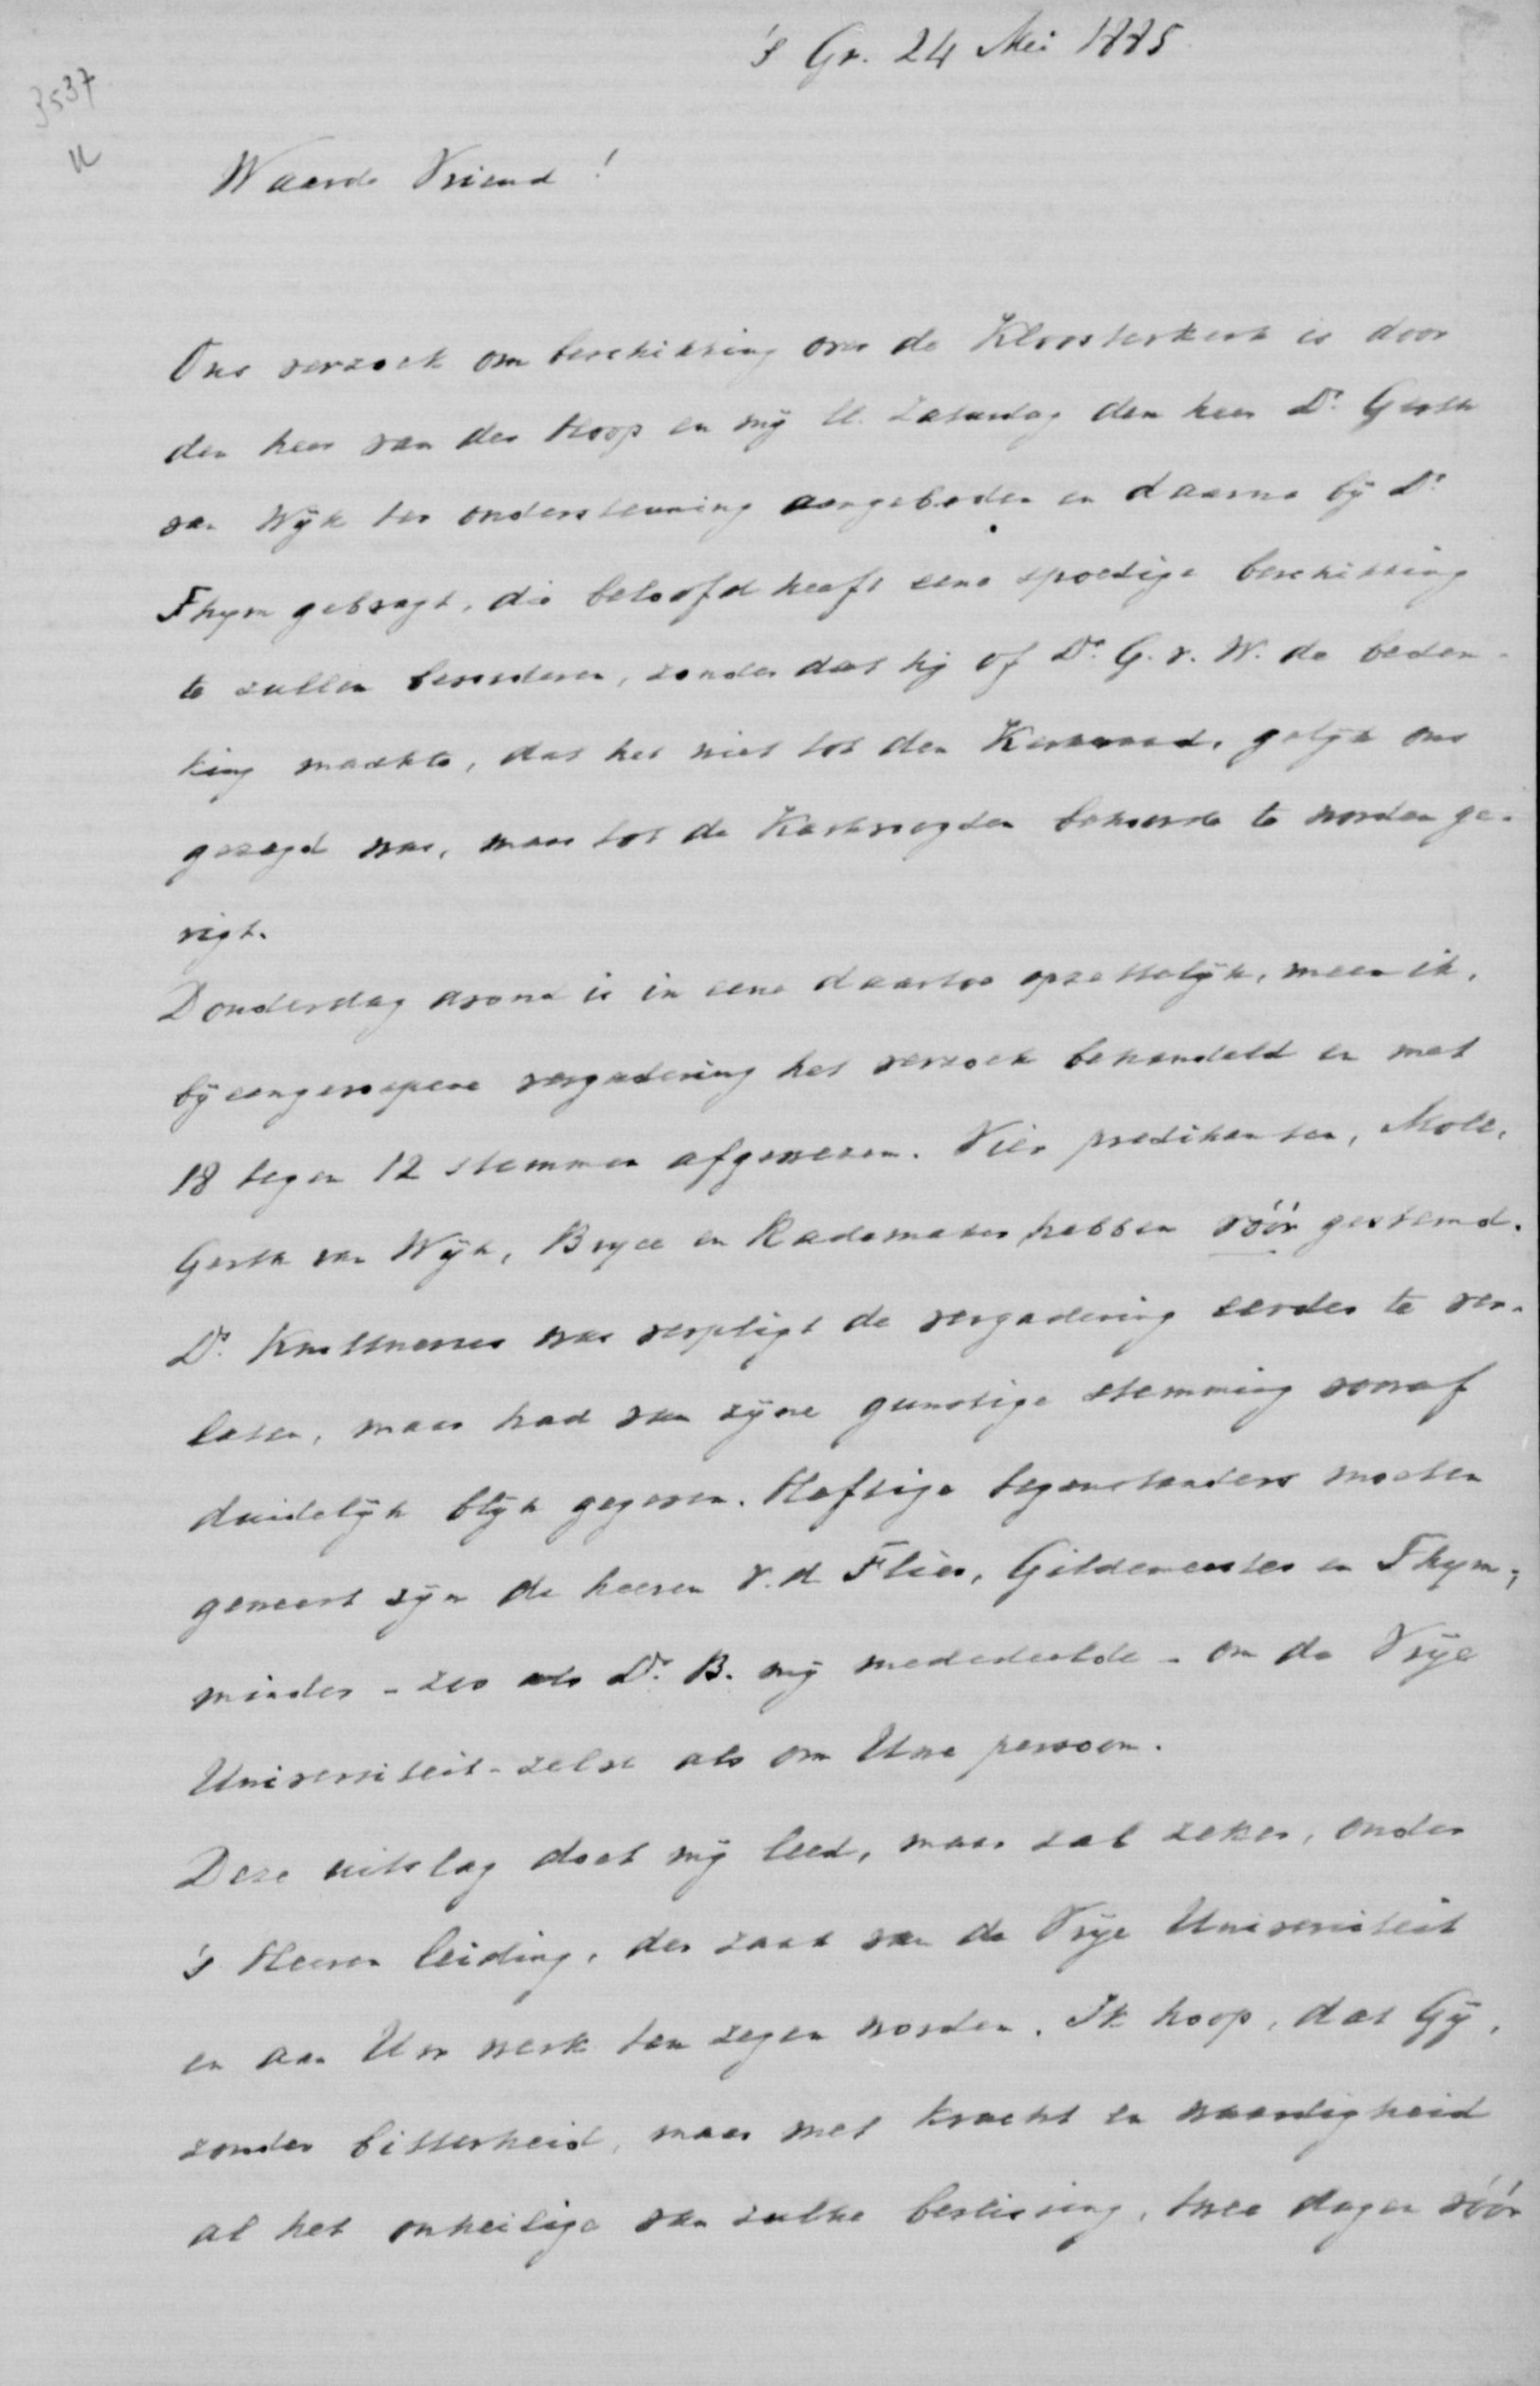 's Gr. 24 Mei 1885.
3537
U
Waarde Vriend!
Ons verzoek om beschikking over de Kloosterkerk is door
den heer van der Hoop en mij ll. Zaturdag den heer Ds. Gerth
van Wijk ter ondersteuning aangeboden en daarna bij Ds.
Thym gebragt, die beloofd heeft eene spoedige beschikking
te zullen bevorderen, zonder dat hij of Ds. G. v. W. de beden-
king maakte, dat het niet tot den Kerkeraad, gelijk ons
gezegd was, maar tot de Kerkvoogden behoorde te worden ge-
rigt.
Donderdag avond is in eene daartoe opzettelijk, meen ik,
bijeengeroepene vergadering het verzoek behandeld en met
18 tegen 12 stemmen afgewezen. Vier predikanten, Moll,
Gerth van Wijk, Bryce en Rademaker, hebben vóór gestemd.
Ds. Knottnerus was verpligt de vergadering eerder te ver-
laten, maar had van zijne gunstige stemming vooraf
duidelijk blijk gegeven. Heftige tegenstanders moeten
geweest zijn de heeren v.d. Flier, Gildemeester en Thym;
minder - zoo als Ds. B. mij mededeelde - om de Vrije
Universiteit-zelve als om Uwe persoon.
Deze uitslag doet mij leed, maar zal zeker, onder
's Heeren leiding, der zaak van de Vrije Universiteit
en aan Uw werk ten zegen worden. Ik hoop, dat Gij,
zonder bitterheid, maar met kracht en waardigheid
al het onheilige van zulke beslissing, twee dagen vóór